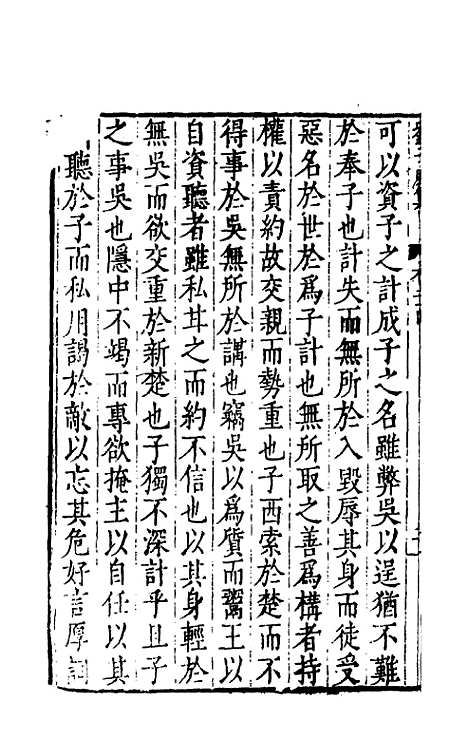 可以資子之計成子之名雖弊吳以逞猶不難
於奉子也計失而無所於入毀辱其身而徒受
惡名於世於爲子計也無所取之善爲構者持
權以責約故交親而勢重也子西索於楚而不
得事於吳無所於講也竊吳以爲質而鬻王以
自資聽者雖私其之而約不信也以其身輕於
無吳而欲交重於新楚也子獨不深計乎且子
之事吳也隱中不竭而專欲掩主以自任以其
聽於子而私用謁於敵以忘其危好言厚詞